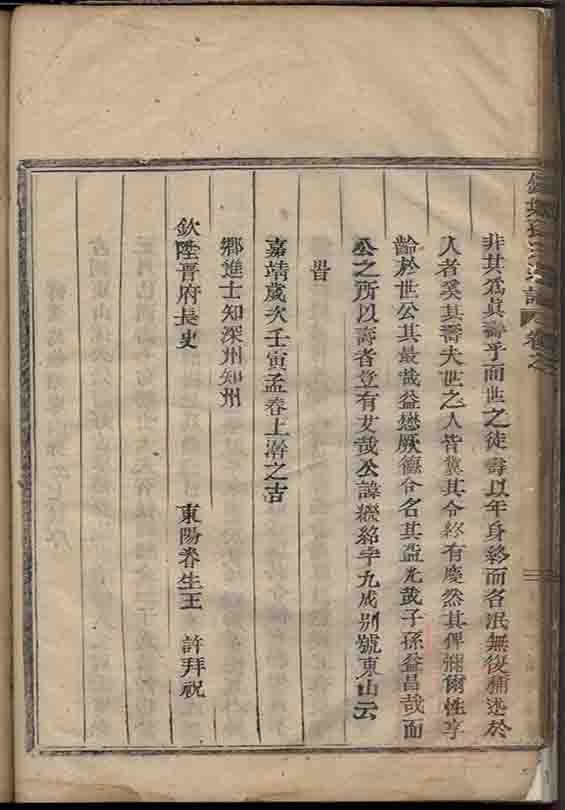 非其爲眞壽乎而世之徒壽以年身終而名泯無復稱述於
人者奚其壽夫世之人皆冀其令終有慶然其俾彌爾性享
齡於世公其最哉益懋厥德令名其益光哉子孫益昌哉而
公之所以壽者豈有艾哉公諱繼紹字九成别號東山云
旹
嘉靖歲次壬寅孟春上澣之吉
鄉進士知深州知州
欽陞晋府長史 東陽眷生王 許拜祝